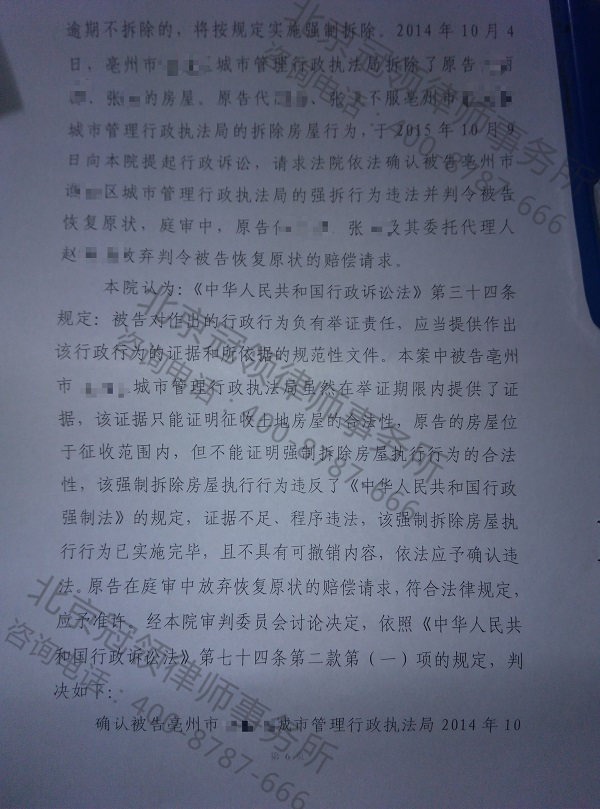 逾期不拆除的，将按规定实施强制拆除。2014年10月4
日，亳州市 城市管理行政执法局拆除了原告
、张 的房屋。原告代 、张 不服亳州市
城市管理行政执法局的拆除房屋行为，于2015年10月9
日向本院提起行政诉讼，请求法院依法确认被告亳州市
区城市管理行政执法局的强拆行为违法并判令被告
恢复原状，庭审中，原告 、张 及其委托代理人
赵 放弃判令被告恢复原状的赔偿请求。
本院认为：《中华人民共和国行政诉讼法》第三十四条
规定：被告对作出的行政行为负有举证责任，应当提供作出
该行政行为的证据和所依据的规范性文件。本案中被告亳州
市 城市管理行政执法局虽然在举证期限内提供了证
据，该证据只能证明征收土地房屋的合法性，原告的房屋位
于征收范围内，但不能证明强制拆除房屋执行行为的合法
性，该强制拆除房屋执行行为违反了《中华人民共和国行政
强制法》的规定，证据不足、程序违法，该强制拆除房屋执
行行为已实施完毕，且不具有可撤销内容，依法应予确认违
法。原告在庭审中放弃恢复原状的赔偿请求，符合法律规定，
应予准许。经本院审判委员会讨论决定，依照《中华人民共
和国行政诉讼法》第七十四条第二款第（一）项的规定，判
决如下：
确认被告亳州市 城市管理行政执法局2014年10
第 6 页
北京冠领律师事务所
咨询电话：400-8787-666
北京冠领律师事务所
咨询电话：400-8787-666
北京冠领律师事务所
咨询电话：400-8787-666